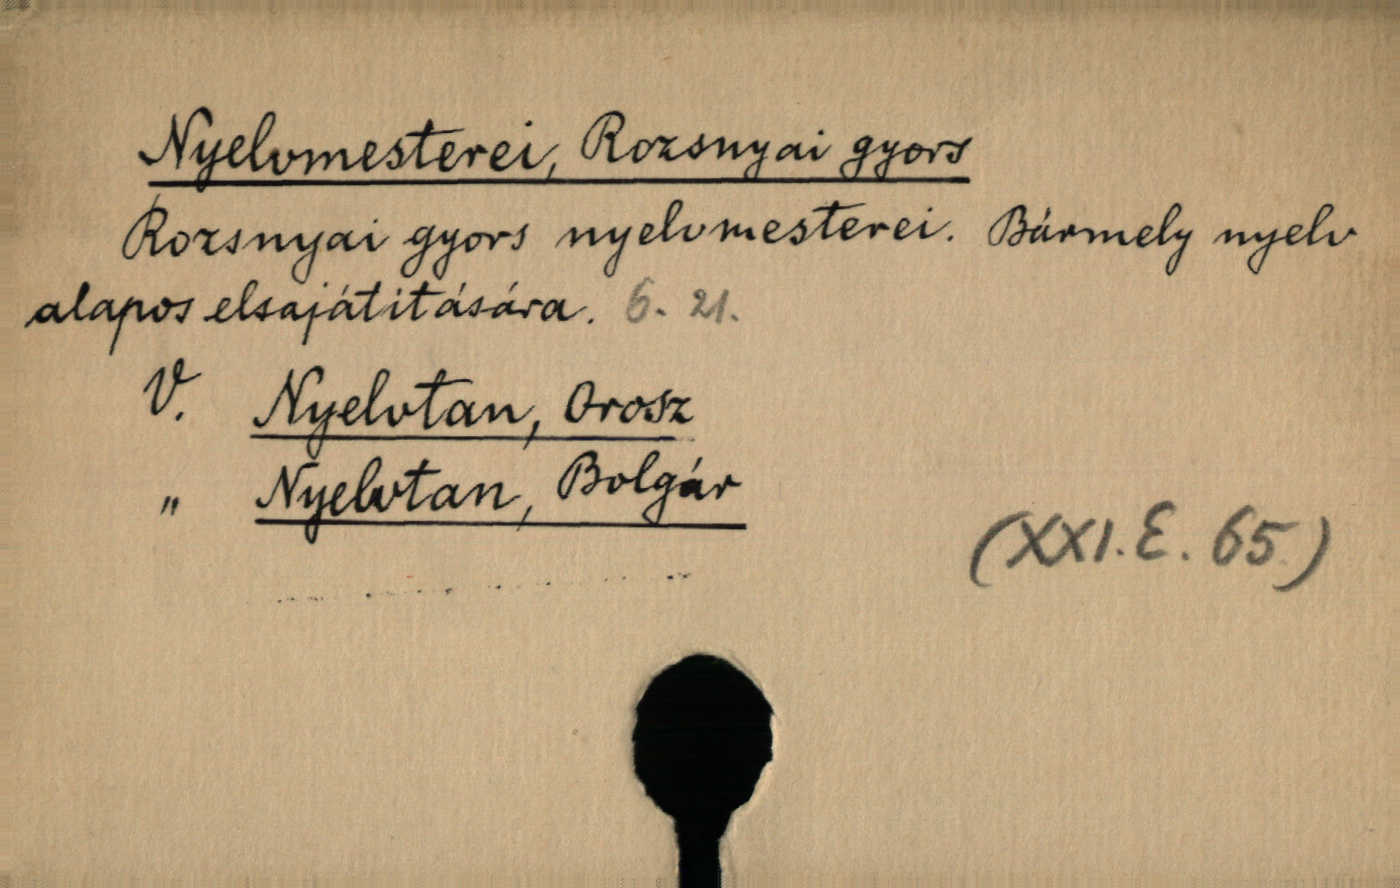 Nyelvmesterei, Rozsnyai gyors
Rozsnyai gyors nyelvmesterei. Bármely nyelv
alapos elsajátitására. 6. 21.
V. Nyelvtan, Orosz
„ Nyelvtan, Bolgár
(XXI. E. 65.)